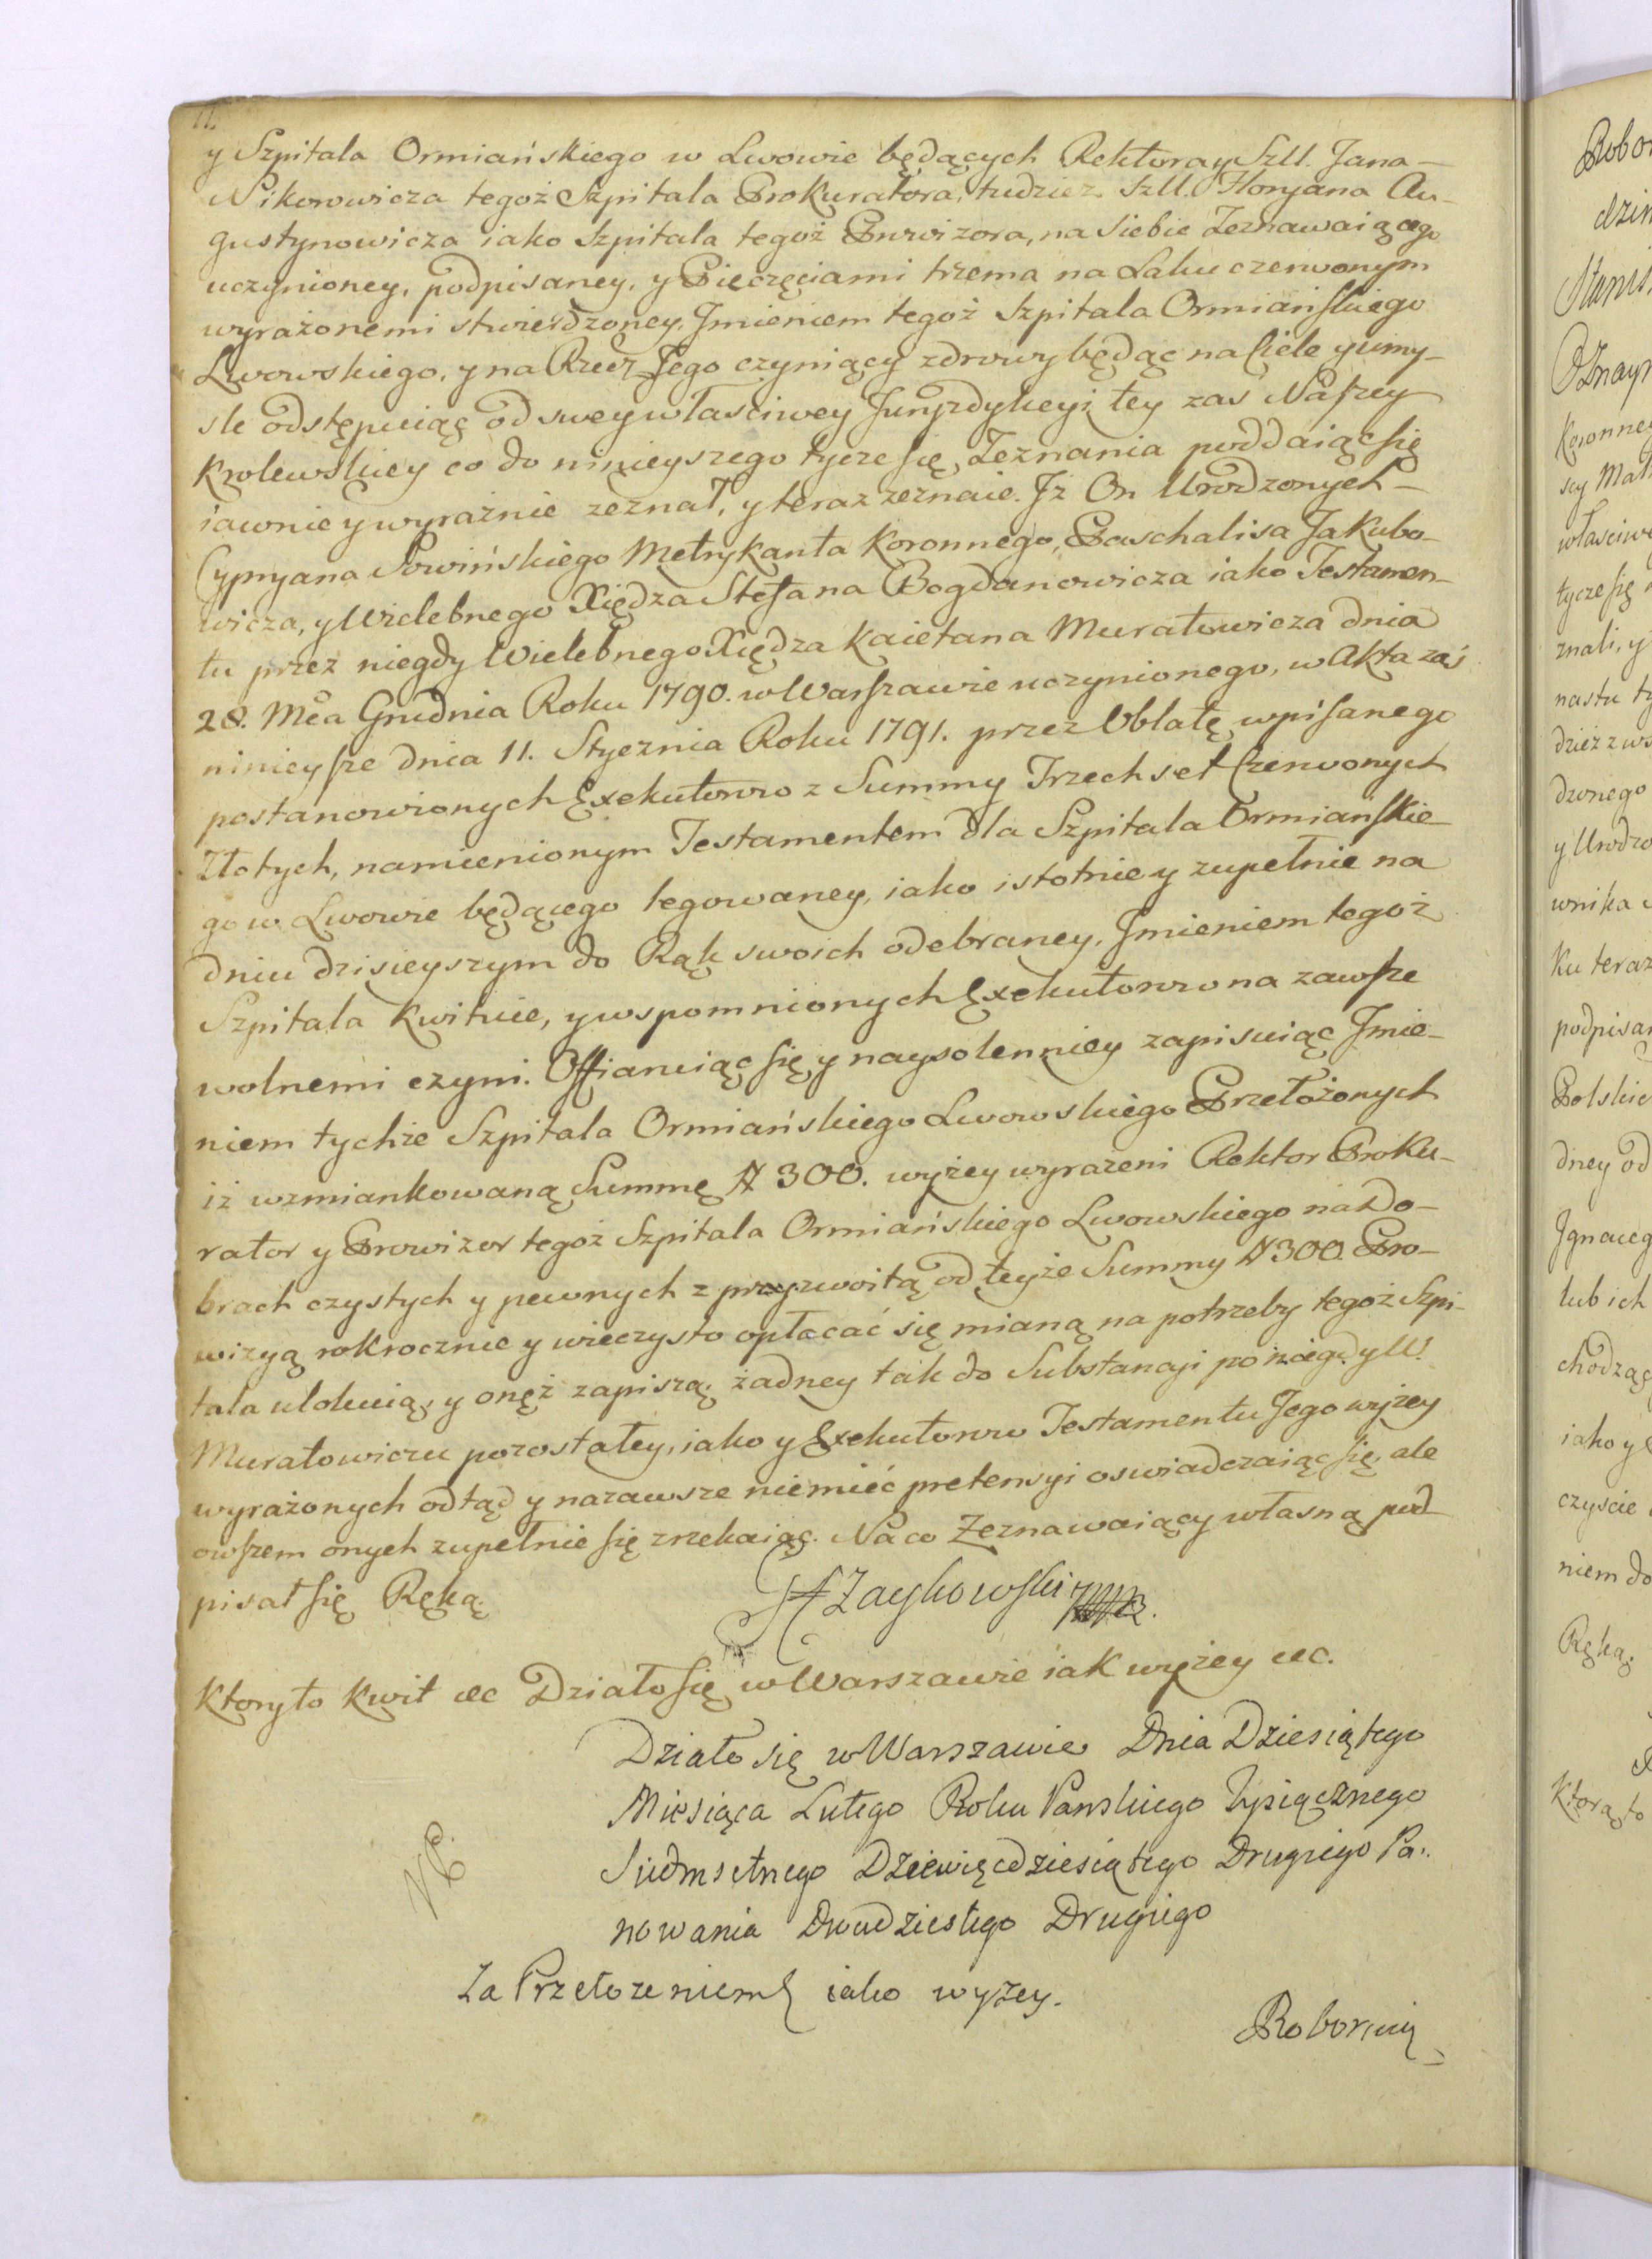 y Szpitala Ormiańskiego w Lwowie będących Rektora y Szll. Jana
Nikorowicza tegoż Szpitala Prokuratora, tudziez Szll. Floryana Au-
gustynowicza iako Szpitala tegoż Prowizora, na siebie Zeznawaiącego
uczynioney, podpisaney, y Pieczęciami trzema na Laku czerwonym
wyrażonemi stwierdzoney, Jmieniem tegoż Szpitala Ormiańskiego
Lwowskiego, y na Rzecz Jego czyniący zdrowy będąc na Ciele y umy-
sle odstępuiąc od swey własciwey Juryzdykcyi, tey zas Naszey
Krolewskiey co do ninieyszego tycze się Zeznania poddaiąc się
iawnie y wyraźnie zeznał, y teraz zeznaie. Jż On Urodzonych
Cypryana Sowińskiego Metrykanta Koronnego, Paschalisa Jakubo-
wicza, y Wielebnego Xiędza Stefana Bogdanowicza iako Testamen-
tu przez niegdy Wielebnego Xiędza Kaietana Muratowicza dnia
28. Mca Grudnia Roku 1790. w Warszawie uczynionego, w Akta zaś
ninieysze dnia 11. Stycznia Roku 1791. przez Oblatę wpisanego
postanowionych Exekutorow z Summy Trzechset Czerwonych
Złotych, namienionym Testamentem dla Szpitala Ormiańskie-
go w Lwowie będącego legowaney, iako istotnie y zupełnie na
dniu dzisieyszym do Rąk swoich odebraney, Jmieniem tegoż
Szpitala Kwituie, y wspomnionych Exekutorow na zawsze
wolnemi czyni. Offiaruiąc się y naysolenniey zapisuiąc Jmie-
niem tychże Szpitala Ormiańskiego Lwowskiego Przełożonych
iż wzmiankowaną Summę # 300. wyżey wyrazeni Rektor Proku-
rator y Prowizor tegoż Szpitala Ormiańskiego Lwowskiego na Do-
brach czystych y pewnych z przyzwoitą od teyże Summy # 300. Pro-
wizyą rokrocznie y wieczysto opłacać się mianą na potrzeby tegoż Szpi-
tala ulokuią, y onęż zapiszą, żadney tak do Substancyi po niegdy W.
Muratowiczu pozostałey, iako y Exekutorow Testamentu Jego wyżey
wyrażonych odtąd y nazawsze niemieć pretensyi oswiadczaiąc się, ale
owszem onych zupełnie się zrzekaiąc. Na co Zeznawaiący własną pod-
pisał się Ręką.
Zaykowski
Ktory to Kwit etc Działo się w Warszawie iak wyżey etc.
Działo się w Warszawie Dnia Dziesiątego
Miesiąca Lutego Roku Panskiego Tysiącznego
Siedmsetnego Dziewięcdziesiątego Drugiego Pa-
nowania Dwudziestego Drugiego
Za Przełozeniem iako wyżey.